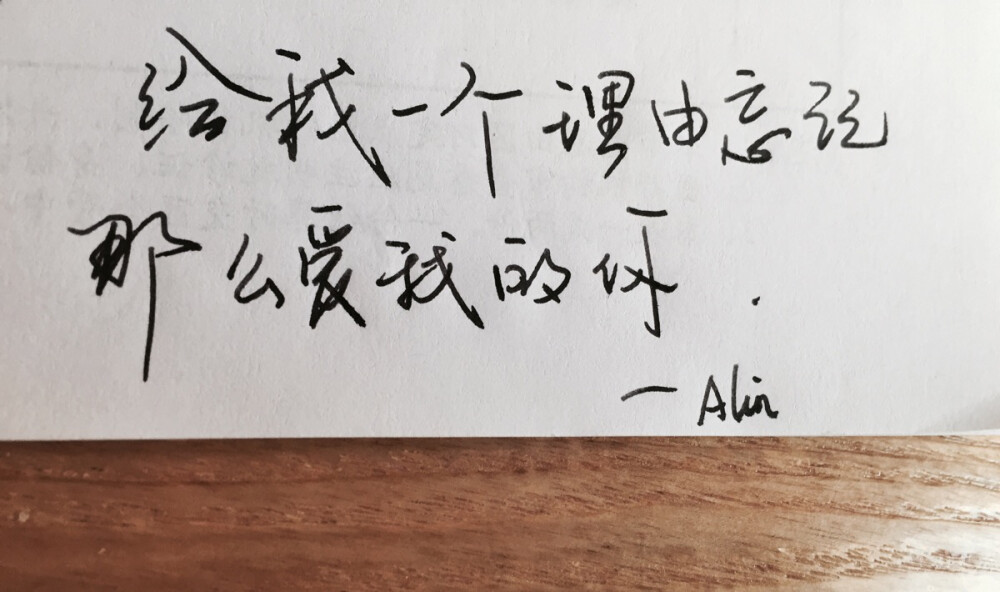 给我一个理由忘记
那么爱我的你.
— Alin